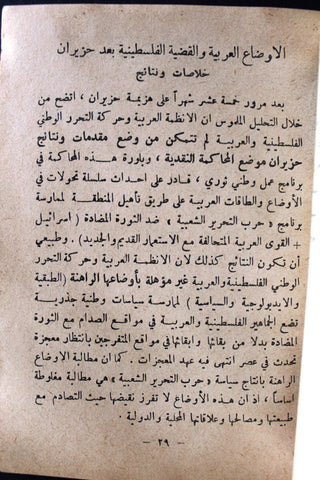 الاوضاع العربية والقضية الفلسطينية بعد حزيران
خلاصات ونتائج
بعد مرور خمسة عشر شهراً على هزيمة حزيران ، اتضح من
خلال التحليل الملموس ان الانظمة العربية وحركة التحرر الوطني
الفلسطينية والعربية لم تتمكن من وضع مقدمات ونتائج
حزيران موضع المحاكمة النقدية ، وبلورة هذه المحاكمة في
برنامج عمل وطني ثوري ، قادر على احداث سلسلة تحولات في
الأوضاع والطاقات العربية على طريق تأهيل المنطقة لممارسة
برنامج « حرب التحرير الشعبية » ضد الثورة المضادة ( اسرائيل
+ القوى العربية المتحالفة مع الاستعمار القديم والجديد ) . وطبيعي
أن تكون النتائج كذلك لان الانظمة العربية وحركة التحرر
الوطني الفلسطينية والعربية غير مؤهلة بأوضاعها الراهنة ( الطبقية
والايديولوجية والسياسية ) لممارسة سياسات وطنية جذرية
تضع الجماهير الفلسطينية والعربية في مواقع الصدام مع الثورة
المضادة بدلا من بقائها وابقائها في مواقع المتفرجين بانتظار معجزة
تحدث في عصر انتهى فيه عهد المعجزات . كما ان مطالبة الاوضاع
الراهنة بانتاج سياسة « حرب التحرير الشعبية » هي مطالبة مغلوطة
اساساً ، اذ ان هذه الأوضاع لا تفرز نقيضها حيث التصادم مع
طبيعتها ومصالحها وعلاقاتها المحلية والدولية .
– ٢٩ –